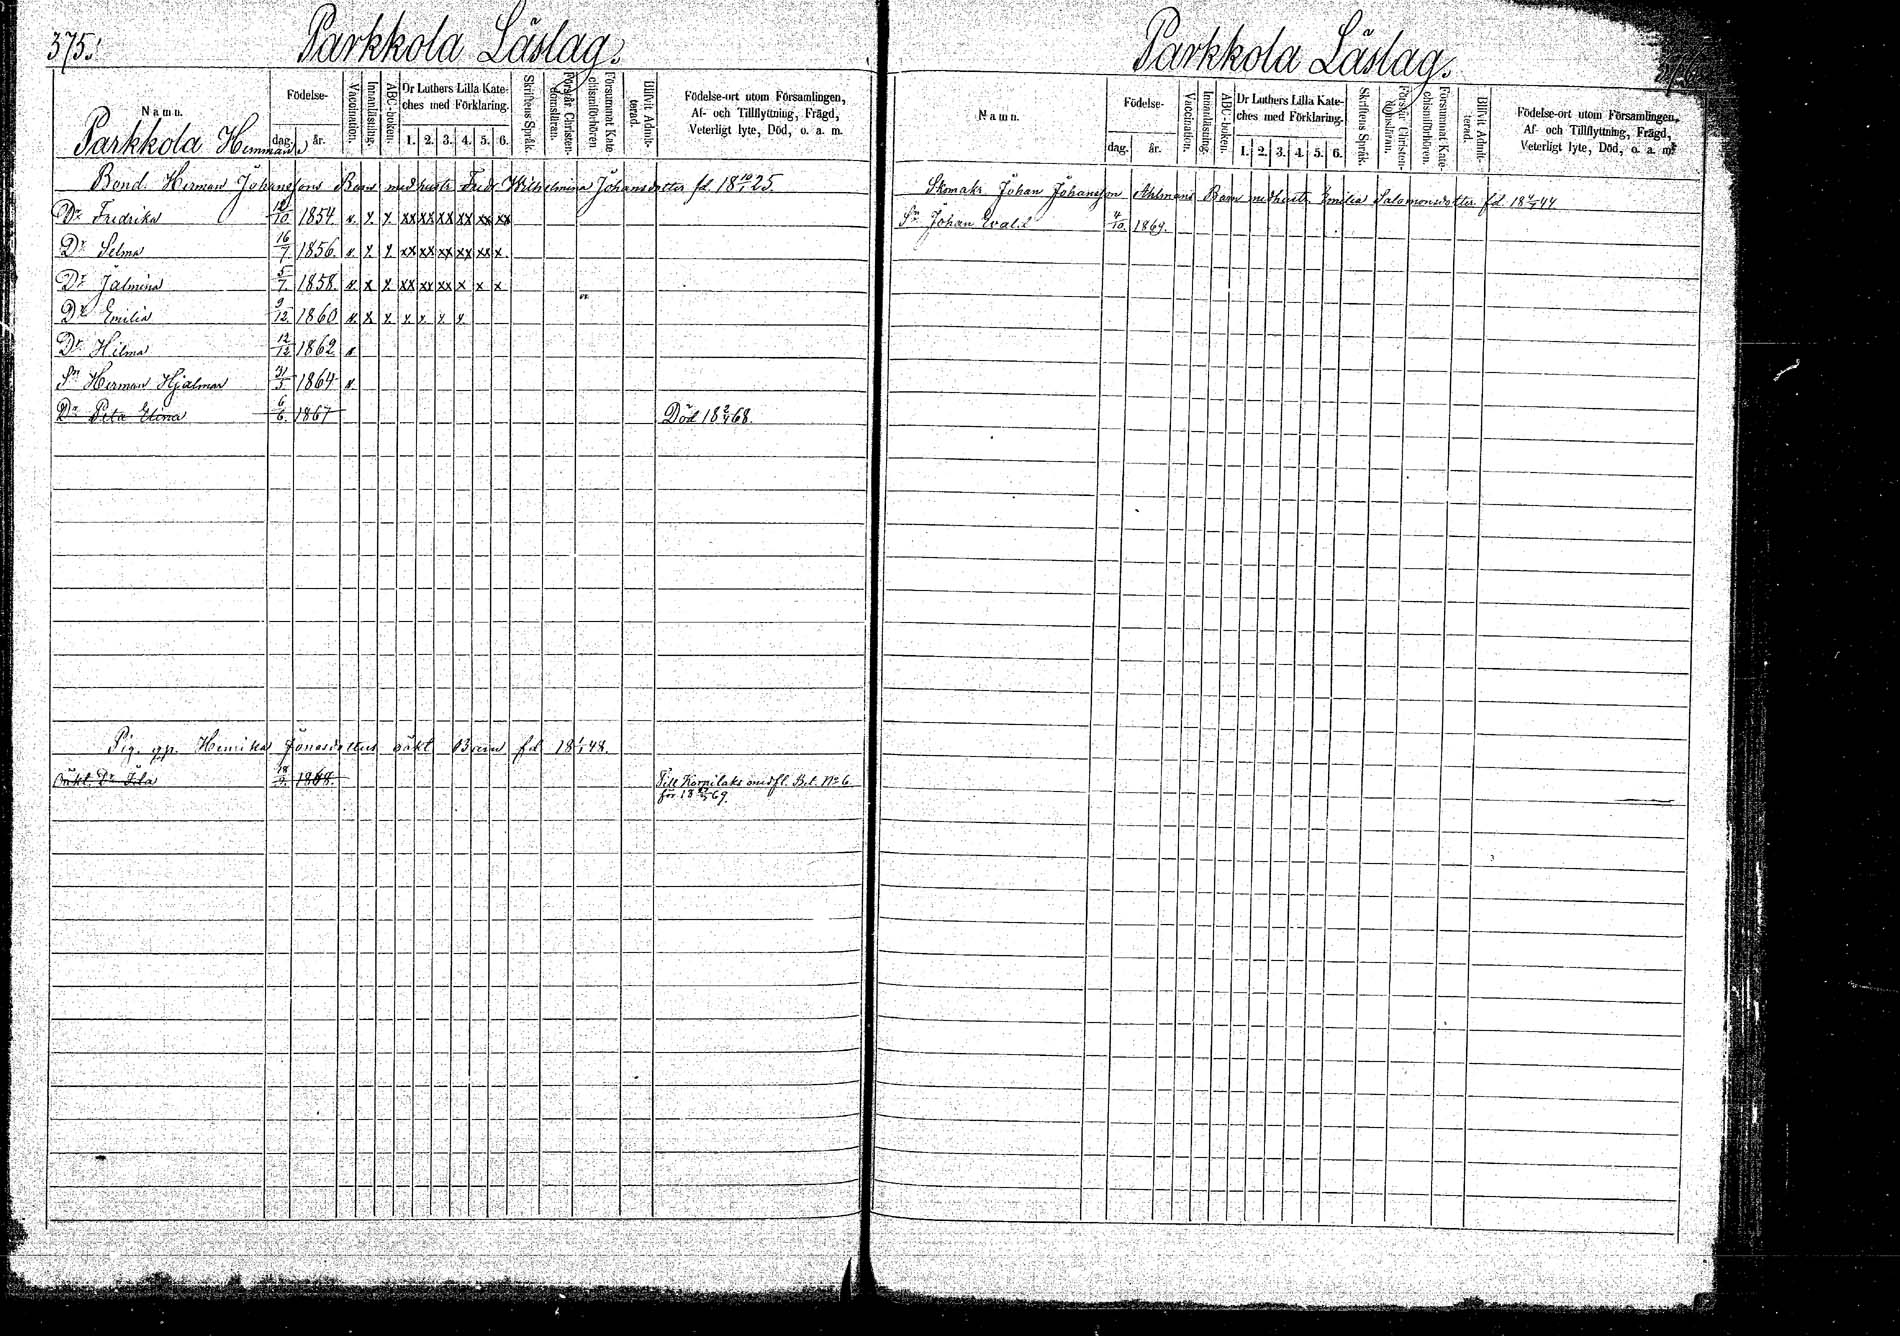 375.
Parkkola Läslag.
Namn.
Födelse-
dag. år.
Vaccination.
Innanläsning.
ABC-boken.
Dr Luthers Lilla Kate-
ches med Förklaring.
1. 2. 3. 4. 5. 6.
Skriftens Språk.
Förstår Christen-
domsläran.
Försummat Kate
chismiförhören.
Blifvit Admit-
terad.
Födelse-ort utom Församlingen,
Af- och Tillflyttning, Frägd,
Veterligt lyte, Död, o. a. m.
Parkkola Hemman
Bond. Herman Johanssons Barn med hustr. Fredr. Wilhelmina Johansdotter fd. 18 10/1 25.
Dr Fredrika 12/10 1854. v. x x xx xx xx xx xx xx
Dr Selma 16/7 1856. v. x x xx xx xx xx xx x
Dr Jalmina 5/7 1858. v. x x xx xx xx x x x
Dr Emilia 9/12 1860 v. x x x x x x
Dr Hilma 12/12 1862 v.
Sn Herman Hjalmar 31/5 1864 v.
Dr Peta Elina 6/6 1867 Död 18 2/4 68.
Pig. gp. Henrika Jonasdotters oäkt Barn fd 18 1/1 48.
oäkt. Dr Ida 18/9 1868. Till Karpilaks medfl. Bet. No 6
för 18 69.
Parkkola Läslag.
Namn.
Födelse-
dag. år.
Vaccination.
Innanläsning.
ABC-boken.
Dr Luthers Lilla Kate-
ches med Förklaring.
1. 2. 3. 4. 5. 6.
Skriftens Språk.
Förstår Christen-
domsläran.
Försummat Kate-
chismiförhören.
Blifvit Admit-
terad.
Födelse-ort utom Församlingen,
Af- och Tillflyttning, Frägd,
Veterligt lyte, Död, o. a. m.
Skomak. Johan Johansson Ahlmans Barn med hustr. Emilia Salomonsdotter fd. 18 44
Sn Johan Evald 4/10 1869.